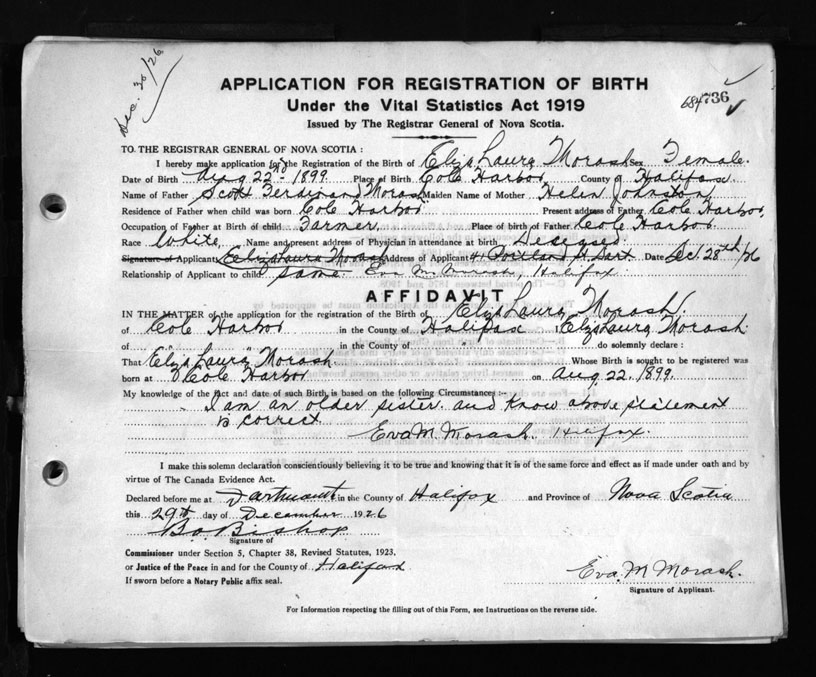 Dec. 30/26
APPLICATION FOR REGISTRATION OF BIRTH
Under the Vital Statistics Act 1919
684736
Issued by The Registrar General of Nova Scotia.
TO THE REGISTRAR GENERAL OF NOVA SCOTIA :
I hereby make application for the Registration of the Birth of Eliza Laura Morash Sex Female.
Date of Birth Aug 22nd 1899 Place of Birth Cole Harbor County of Halifax
Name of Father Scott Ferdinand Morash Maiden Name of Mother Helen Johnston
Residence of Father when child was born Cole Harbor Present address of Father Cole Harbor
Occupation of Father at Birth of child Farmer Place of birth of Father Cole Harbor
Race White Name and present address of Physician in attendance at birth Deseased
Signature of Applicant Eliza Laura Morash Address of Applicant 41 Portland St Dart Date Dec. 28th/26
Relationship of Applicant to child same Eva M Morash, Halifax
AFFIDAVIT
IN THE MATTER of the application for the registration of the Birth of Eliza Laura Morash
of Cole Harbor in the County of Halifax I Eliza Laura Morash
of " " in the County of do solemnly declare :
That "Eliza Laura" Morash Whose Birth is sought to be registered was
born at Cole Harbor on Aug 22. 1899.
My knowledge of the fact and date of such Birth, is based on the following Circumstances :-
I am an older sister. and know above statement
is correct
Eva M. Morash. Halifax.
I make this solemn declaration conscientiously believing it to be true and knowing that it is of the same force and effect as if made under oath and by
virtue of The Canada Evidence Act.
Declared before me at Dartmouth in the County of Halifax and Province of Nova Scotia
this 29th day of December 1926
B. O. Bishop
Signature of
Commissioner under Section 5, Chapter 38, Revised Statutes, 1923.
or Justice of the Peace in and for the County of Halifax
If sworn before a Notary Public affix seal.
Eva. M Morash.
Signature of Applicant.
For Information respecting the filling out of this Form, see Instructions on the reverse side.